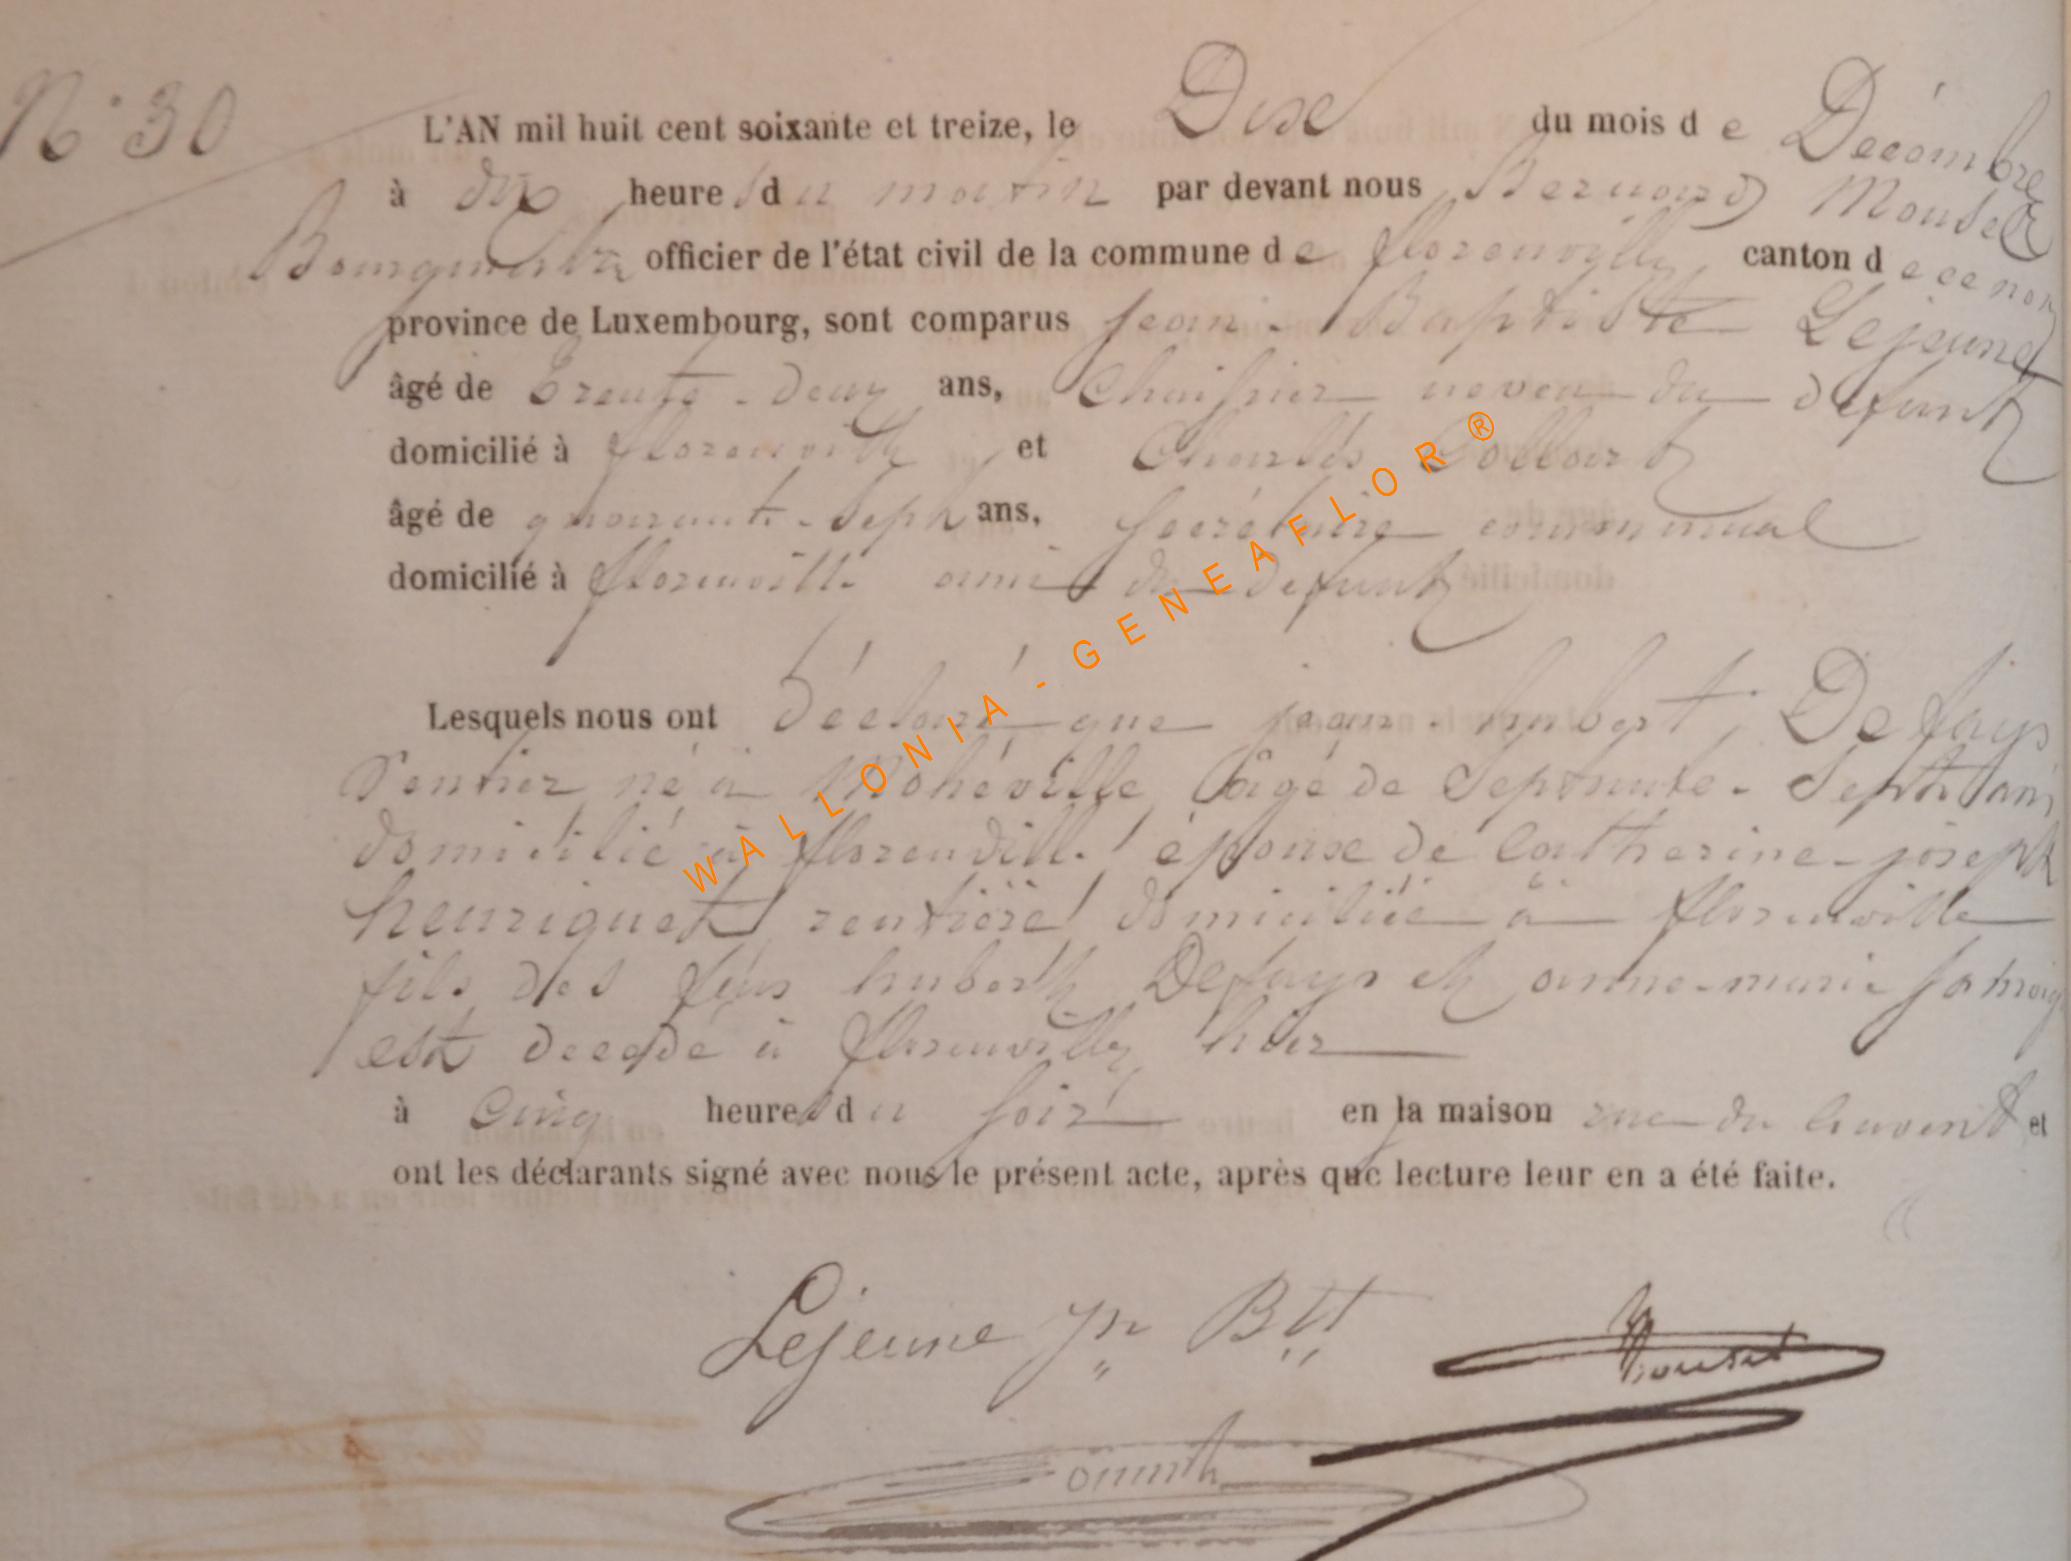 N° 30
L'AN mil huit cent soixante et treize, le Dix du mois de Décembre
à dix heures du matin par devant nous Bernard Mouset
officier de l'état civil de la commune de florenville canton de ce nom
province de Luxembourg, sont comparus jean-Baptiste Lejeune
âgé de trente-deux ans, neveu du défunt
domicilié à florenville et Charles Collart
âgé de quarante-sept ans, secrétaire communal
domicilié à florenville ami du défunt
Lesquels nous ont déclaré que jean-hubert Defays
rentier né à Mohéville âgé de septante-sept ans
domicilié à florenville époux de Catherine-joseph
henriquet rentière domiciliée à florenville
fils des feus hubert Defays et anne-marie
est décédé à florenville hier
à cinq heures du soir en la maison rue du Couvent et
ont les déclarants signé avec nous le présent acte, après que lecture leur en a été faite.
Lejeune Jn Btt
Mouset
WALLONIA - GENEAFLOR ®